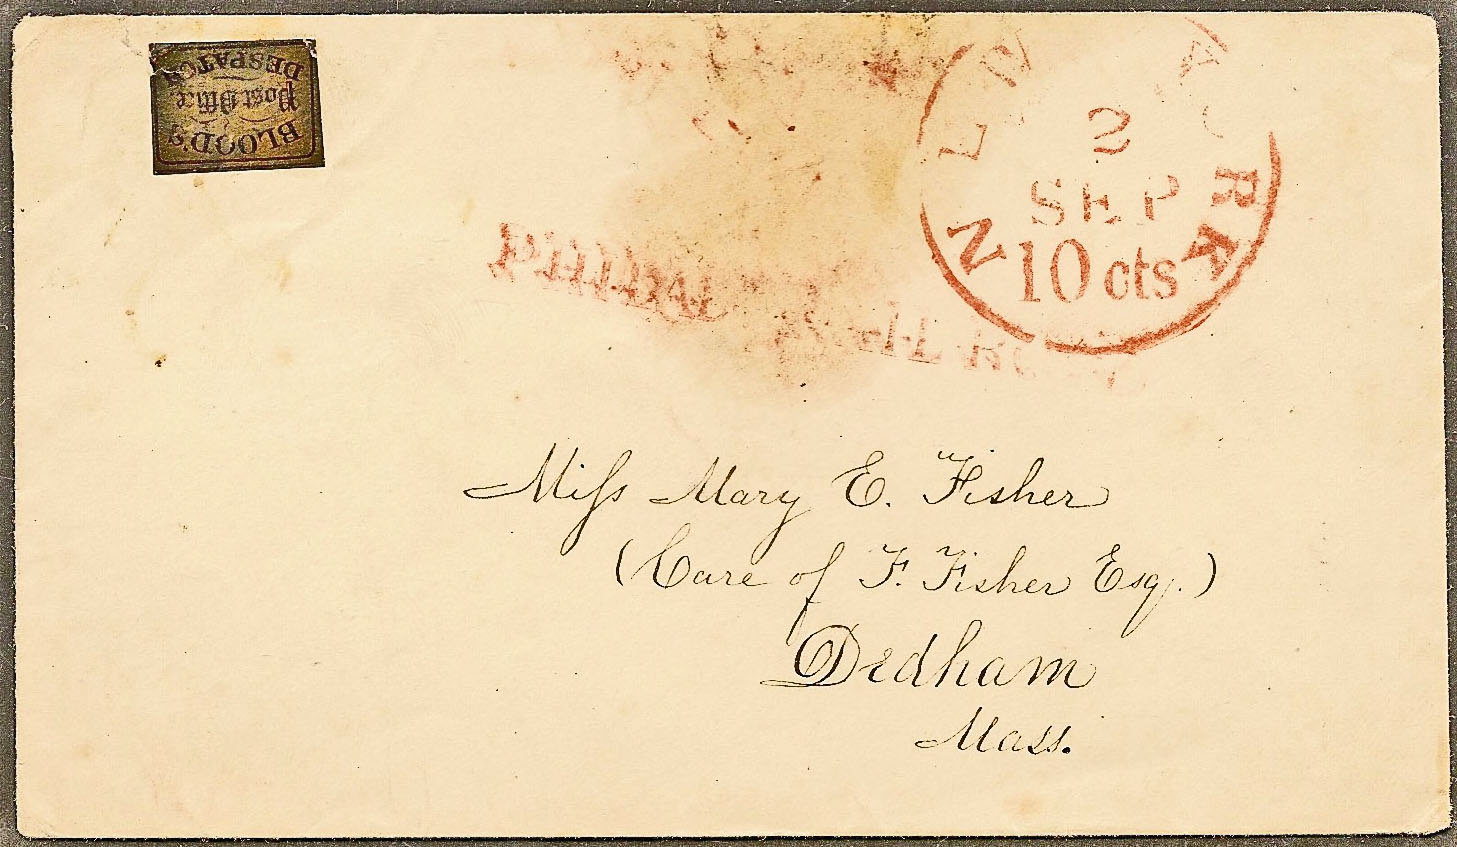 BLOOD'S
Post Office
DESPATCH
NEW YORK
2
SEP
10 cts
Miss Mary E. Fisher
(Care of F. Fisher Esq.)
Dedham
Mass.